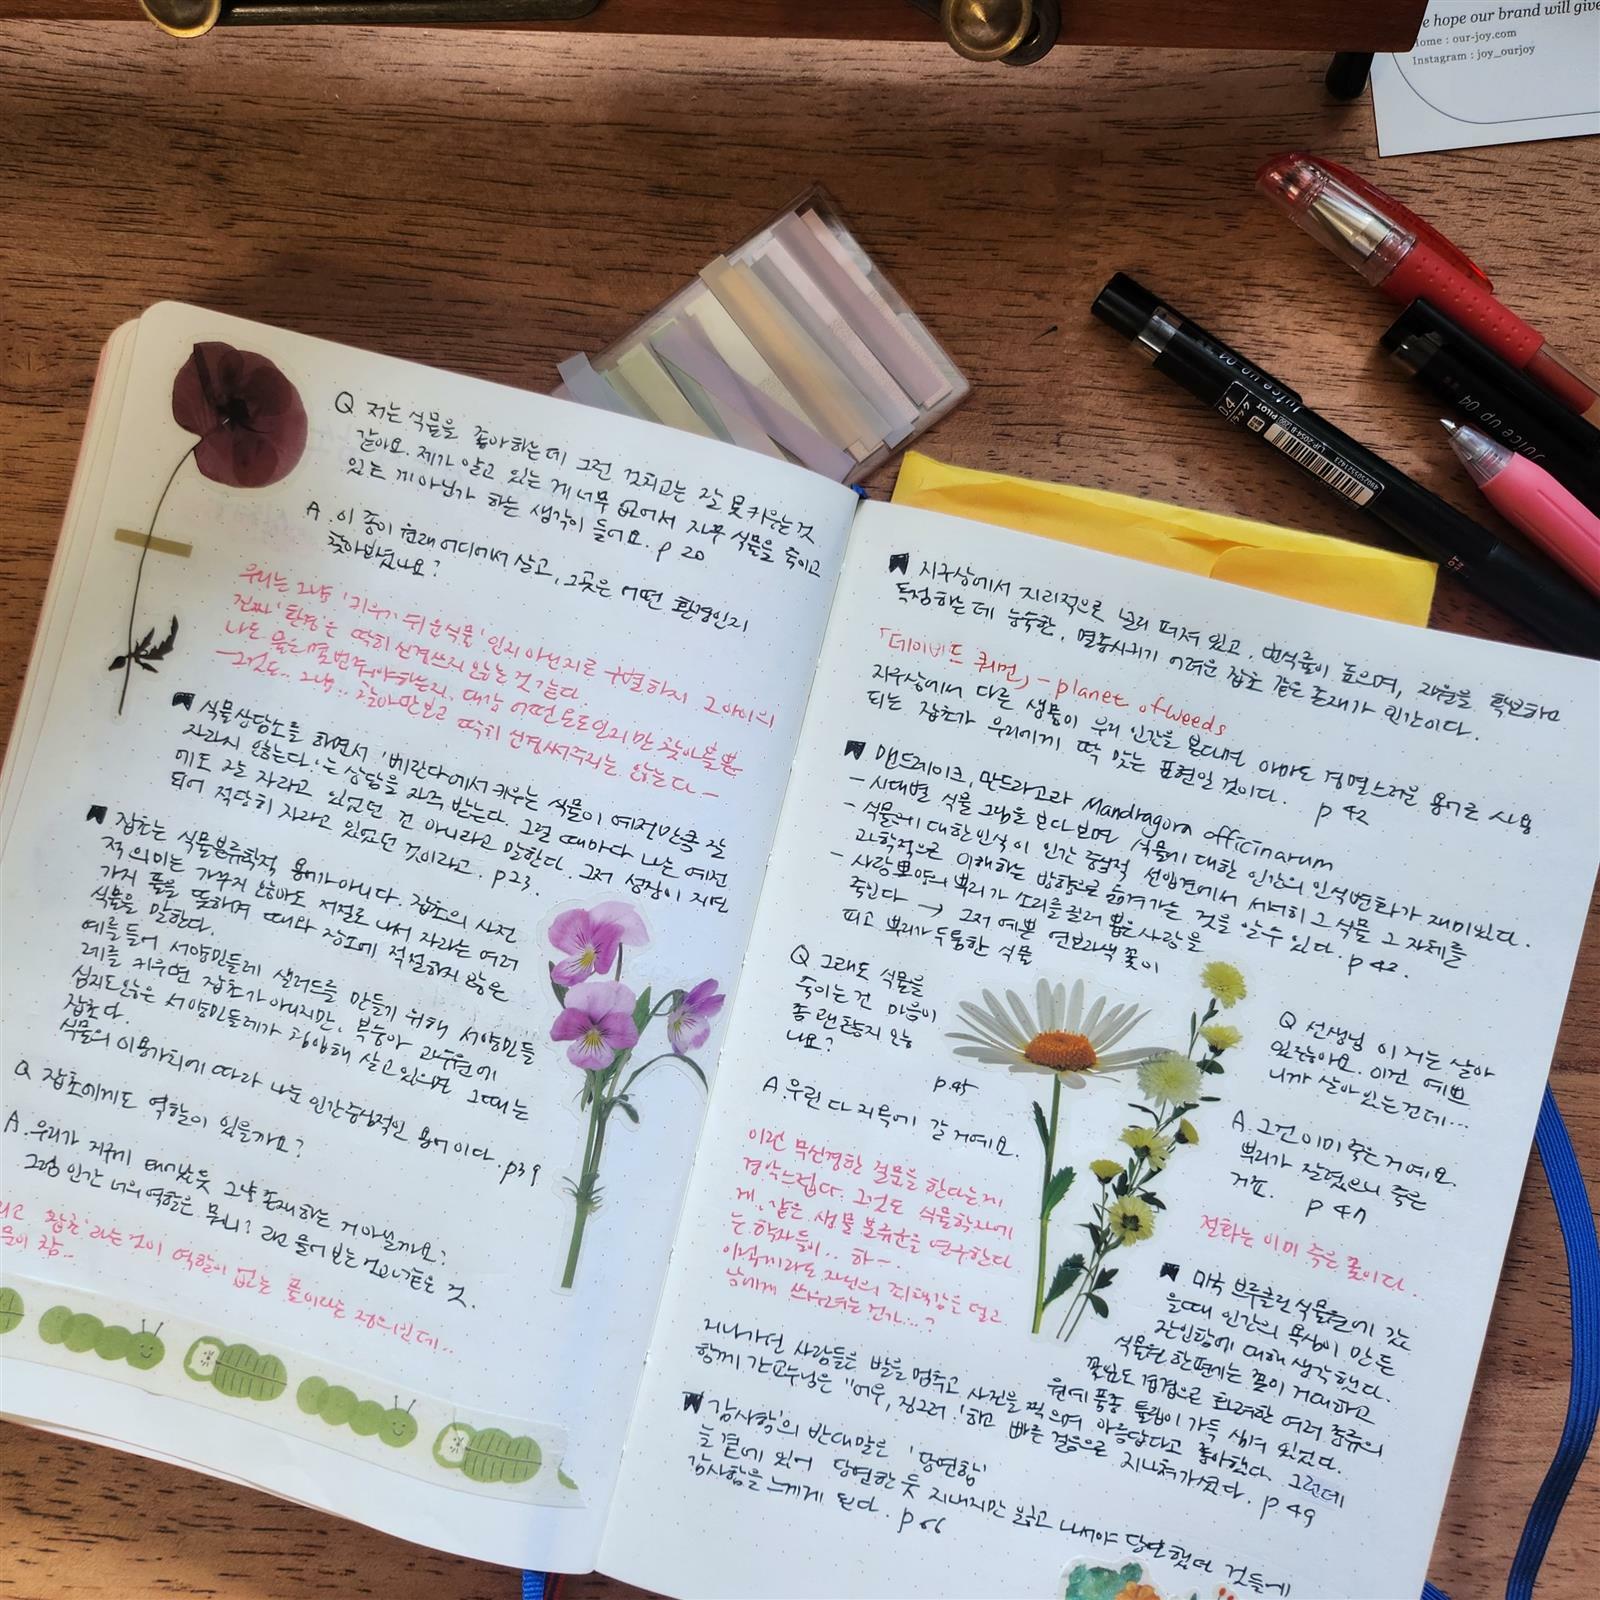 e hope our brand will give
Home : our-joy.com
Instagram : joy_ourjoy
Juice up 04
0.4
PILOT
Juice up 04
Q 저는 식물을 좋아하는데 그런 것치고는 잘 못 키우는 것
같아요. 제가 알고 있는 게 너무 없어서 자꾸 식물을 죽이고
있는 게 아닌가 하는 생각이 들어요. p 20
A 이 종이 원래 어디에서 살고, 그곳은 어떤 환경인지
찾아보셨나요?
우리는 그냥 '키우기 쉬운 식물'인지 아닌지로 구별하지 그 아이의
진짜 '환경'은 딱히 신경쓰지 않는 것 같다.
나도 물은 몇번 주어야하는지, 대강 어떤 온도인지만 찾아볼 뿐
-그것도.. 그냥.. 찾아만보고 딱히 신경써주지는 않는다-
식물상담소를 하면서 '베란다에서 키우는 식물이 예전만큼 잘
자라지 않는다.'는 상담을 자주 받는다. 그럴 때마다 나는 예전
에도 잘 자라고 있었던 건 아니라고 말한다. 그저 성장이 지연
되어 적당히 자라고 있었던 것이라고. p23.
잡초는 식물분류학적 용어가 아니다. 잡초의 사전
적 의미는 가꾸지 않아도 저절로 나서 자라는 여러
가지 풀을 뜻하며 때와 장소에 적절하지 않은
식물을 말한다.
예를들어 서양민들레 샐러드를 만들기 위해 서양민들
레를 키우면 잡초가 아니지만, 복숭아 과수원에
심지도 않은 서양민들레가 침입해 살고 있으면 그때는
잡초다.
식물의 이용가치에 따라 나눈 인간중심적인 용어이다. p39
Q 잡초에게도 역할이 있을까요?
A. 우리가 지구에 태어났듯 그냥 존재하는 거 아닐까요?
그럼 인간 너의 역할은 뭐니? 라고 물어보는 거나 같은 것.
'잡초'라는 것이 역할이 없는 풀이라는 정의인데..
지구상에서 지리적으로 널리 퍼져 있고, 번식률이 높으며, 자원을 확보하고
독점하는 데 능숙한, 멸종시키기 어려운 잡초 같은 존재가 인간이다.
「데이비드 쿼먼」- planet of weeds
지구상에서 다른 생물이 우리 인간을 본다면 아마도 경멸스러운 용어로 사용
되는 잡초가 우리에게 딱 맞는 표현일 것이다. p 42
맨드레이크, 만드라고라 Mandragora officinarum
- 시대별 식물 그림을 보다보면 식물에 대한 인간의 인식변화가 재미있다.
- 식물에 대한 인식이 인간 중심적 선입견에서 서서히 그 식물 그 자체를
과학적으로 이해하는 방향으로 옮겨가는 것을 알 수 있다. p 42.
- 사람 모양의 뿌리가 소리를 질러 뽑은 사람을
죽인다 → 그저 예쁜 연보라색 꽃이
피고 뿌리가 두툼한 식물
Q 그래도 식물을
죽이는 건 마음이
좀 괜찮지 않
나요?
p.45
A. 우린 다 지옥에 갈 거예요.
이런 무신경한 질문을 한다는게
경악스럽다. 그것도 식물학자에
게.. 같은 생물 분류군을 연구한다
는 학자들이.. 하-.
이렇게라도 자신의 죄책감을 덜고
남에게 씌우려는 건가...?
Q 선생님 이 거는 살아
있잖아요. 이건 예쁘
니까 살아있는건데...
A. 그건 이미 죽은 거예요.
뿌리가 잘렸으니 죽은
거죠. p 47
절화는 이미 죽은 꽃이다..
미국 브루클린 식물원에 갔
을때 인간의 욕심이 만든
잔인함에 대해 생각했다.
식물원 한편에는 꽃이 거대하고
꽃잎도 겹겹으로 화려한 여러 종류의
원예 품종 튤립이 가득 심겨 있었다.
지나가던 사람들은 발을 멈추고 사진을 찍으며 아름답다고 좋아했다. 그런데
함께 간 교수님은 "어우, 징그러!"하고 빠른 걸음으로 지나쳐가셨다. p 49
'감사함'의 반대말은 '당연함'
늘 곁에 있어 당연한 듯 지내지만 잃고 나서야 당연했던 것들에
감사함을 느끼게 된다. p 66